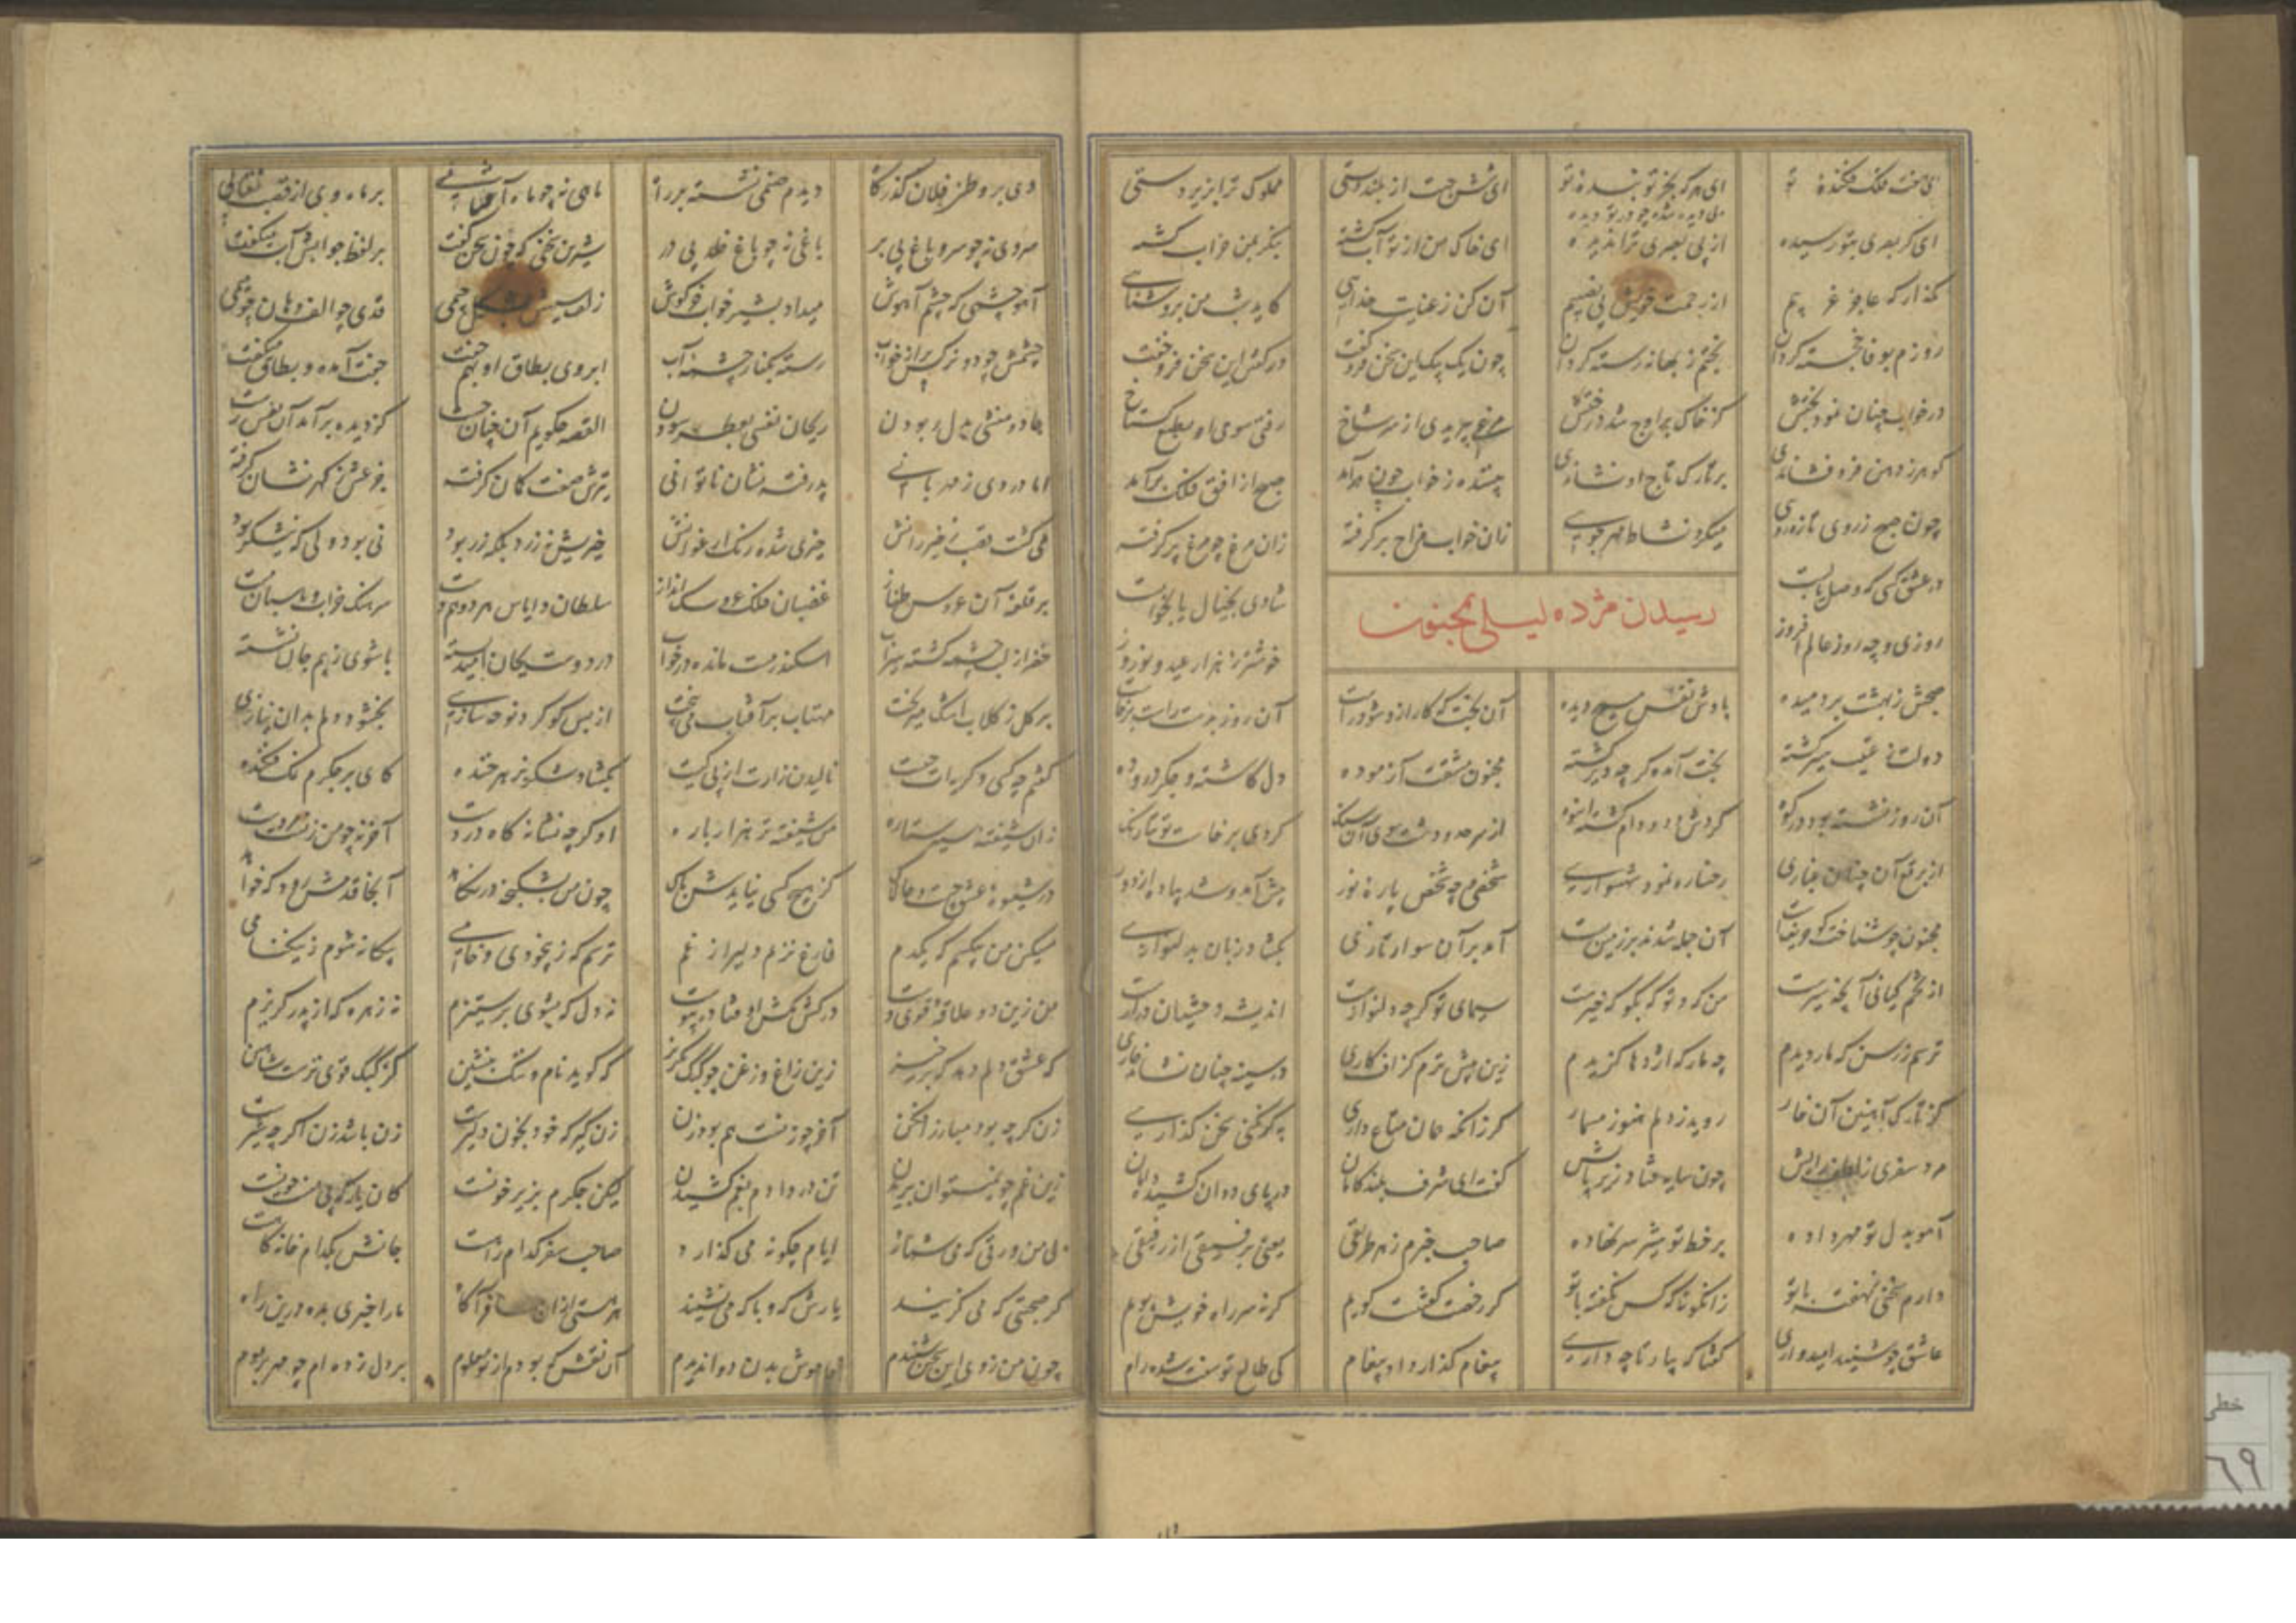 ای هفت فلک فکنده تو ای هر که بجز تو بنده تو ای شش جهت از بلند دستی مملوک ترا بزیردستی
ای کر بصری بتو رسیده از بی بصری ترا ندیده ای خاک من از تو آب کشته بنکر بمن خراب کشته
مکذار که عاجز غریبم از رحمت خویش بی نصیبم آن کن ز عنایت خدایی کاید شب من بروشنایی
روزم بوفا خجسته کردان بختم ز بهانه رسته کردان چون یک بیک این سخن فرو کفت در کفتن این سخن فرو خفت
در خواب چنان نمود بختش کز خاک بر اوج شد درختش مرغی بپریدی از سر شاخ رفتی سوی او بطبع کستاخ
کوهر ز دهن فرو فشاندی بر تارک تاج او نشاندی بیننده ز خواب چون درآمد صبح از افق فلک برآمد
چون صبح ز روی تازه رویی میکرد نشاط مهرجویی زان خواب مزاج برکرفته زان مرغ چو مرغ پر کرفته
در عشق کسی که وصل یابست شادی بخیال یا بخوابست
رسیدن مژده لیلی بمجنون
روزی و چه روز عالم افروز خوشتر ز هزار عید و نوروز
صبحش ز بهشت بر دمیده بادش نفس مسیح دیده آن بخت که کار ازو شود راست آن روز بدست راست برخاست
دولت ز عتیب سیر کشته بخت آمده کرچه دیر کشته مجنون مشقت آزموده دل کاشته و جکر دروده
آن روز نشسته بود در کوه کردش دد و دام کشته انبوه از بر صد و دشت سوی آن سنک کردی برخاست توتیا رنک
از برقع آن چنان غباری رخساره نمود شهسواری شخصی و چه شخص پاره نور پیش آمد و شد پیاده از دور
مجنون چو شناخت کو وفاست آن جمله شدند بر زمین بست آمد بر آن سوار تازی بکشاد زبان بدلنوازی
از نجم یمانی آنچه سیرست من که و تو که بکو که خیرست سیمای تو کرچه دلنوازست اندیشه وحشیان درازست
ترسم ز رسن که مار دیدم چه مار که اژدها کزیدم زین پیش ترم کزاف کاری در سینه چنان نشاند خاری
کز تارک آهنین آن خار روید ز دلم هنوز مسمار کر زانکه همان متاع داری به کر نکنی سخن کذاری
مرد سفری ز لطف رایش چون سایه فتاد زیر پایش کفت ای شرف بلندنامان در پای ددان کشیده دامان
آهو بدل تو مهر داده بر خط تو شیر سر نهاده صاحب خبرم ز هر طریقی یعنی برفیقی از رفیقی
دارم سخنی نهفته با تو زانکونه که کس نکفته با تو کر رخصت کفتنست کویم کرنه سر راه خویش پویم
عاشق چو شنید امیدواری کفتا که بیار تا چه داری پیغام کذار داد پیغام کی طالع توسنت شده رام
دی بر و طرف فلان کذرکاه دیدم صنمی نشسته بر راه ماهی نه چو ماه آفتابی بر ماه وی از قصب نقابی
سروی نه چو سرو باغ بی بر باغی نه چو باغ خلد بی در شیرین سخنی که چون سخن کفت بر لفظ جوابش آب میخفت
آهو چشمی که چشم آهوش میداد بشیر خواب خرکوش زلف سیهش بشکل جیمی قدی چو الف دهان چو میمی
چشمش چو دو نرکس پر از خواب رسته بکنار چشمه آب ابروی بطاق او بهم جفت جفت آمده و بطاق میکفت
جادو منشی بدل ربودن ریحان نفسی بعطر سودن القصه چکویم آن چنان چست کز دیده برآمد آن نفس رست
اما دروی ز مهربانی پذرفته نشان ناتوانی تیرش صفت کمان کرفته جزعش ز کهر نشان کرفته
می کشت قصب ز خیزرانش خیری شده رنک ارغوانش خیریش نه زرد بلکه زر بود نی بود ولی که نیشکر بود
بر قلعه آن عروس طناز سلطان دو ایاس هر دو سرهنک خراب
خضر از لب چشمه کشته سیراب اسکندر مست مانده در خواب در دوست بجان امید بسته با شوی ز بیم جان نشسته
بر کل ز کلاب اشک میریخت مهتاب بر آفتاب می بیخت از بس که کرد نوحه سازی بخشود دلم بدان نیازی
کفتم چه کسی و کریه از چیست نالیدن زارت از پی کیست بکشاد شکر بزهر خنده کای بر جکرم نمک فکنده
زان شیفته سیه ستاره من شیفته تر هزار باره او کرچه نشانه کاه دردست آخر نه چو من زنست مردست
در شیوه عشق هست چالاک کز هیچ کسی نیایدش باک چون من بشکنجه در نکاهد آنجا قدمش رود که خواهد
مسکین من بیکسم که یکدم فارغ نزنم دلیر از غم ترسم که ز بیخودی و خامی بیکانه شوم ز نیکنامی
من زین دو علاقه قوی دست در کش مکش اوفتاده پیوست نه دل که بشوی برستیزم نه زهره که از پدر کریزم
که عشق دلم دهد که برخیز زین زاغ و زغن چو کبک بکریز که کوید نام و ننک بنشین کز کبک قوی ترست شاهین
زن کرچه بود مبارز افکن آخر چو زنست هم بود زن زن کیر که خود بخون دلیرست زن باشد زن اکرچه شیرست
زین غم چو نمیتوان بریدن تن در دادم بغم کشیدن لیکن جکرم بزیر خونست کان یار که بی منست چونست
بی من ورقی که می شمارد ایام چکونه می کذارد صاحب سفر کدام راهست جانش بکدام خانه کاهست
کر صحبتی که می کزیند یارش که و با که می نشیند هر هستی ازان مسافر آکاه ما را خبری بده درین راه
چون من ز وی این سخن شنیدم خاموش بدن روا ندیدم آن نقش که بودم از تو معلوم بر دل زده ام چو مهر بر موم
خطی
۶۹